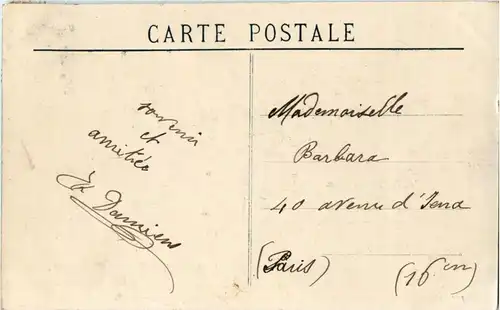 CARTE POSTALE
souvenir
et
amitiée
Damiens
Mademoiselle
Barbara
40 avenue d'Iena
(Paris) (16em)